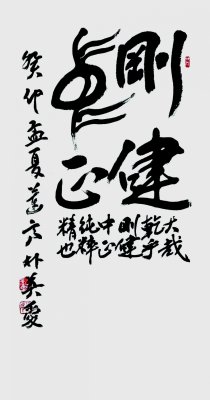 剛健
中正
大哉
乾乎
剛健
中正
純粹
精也
癸卯孟夏 朴英愛